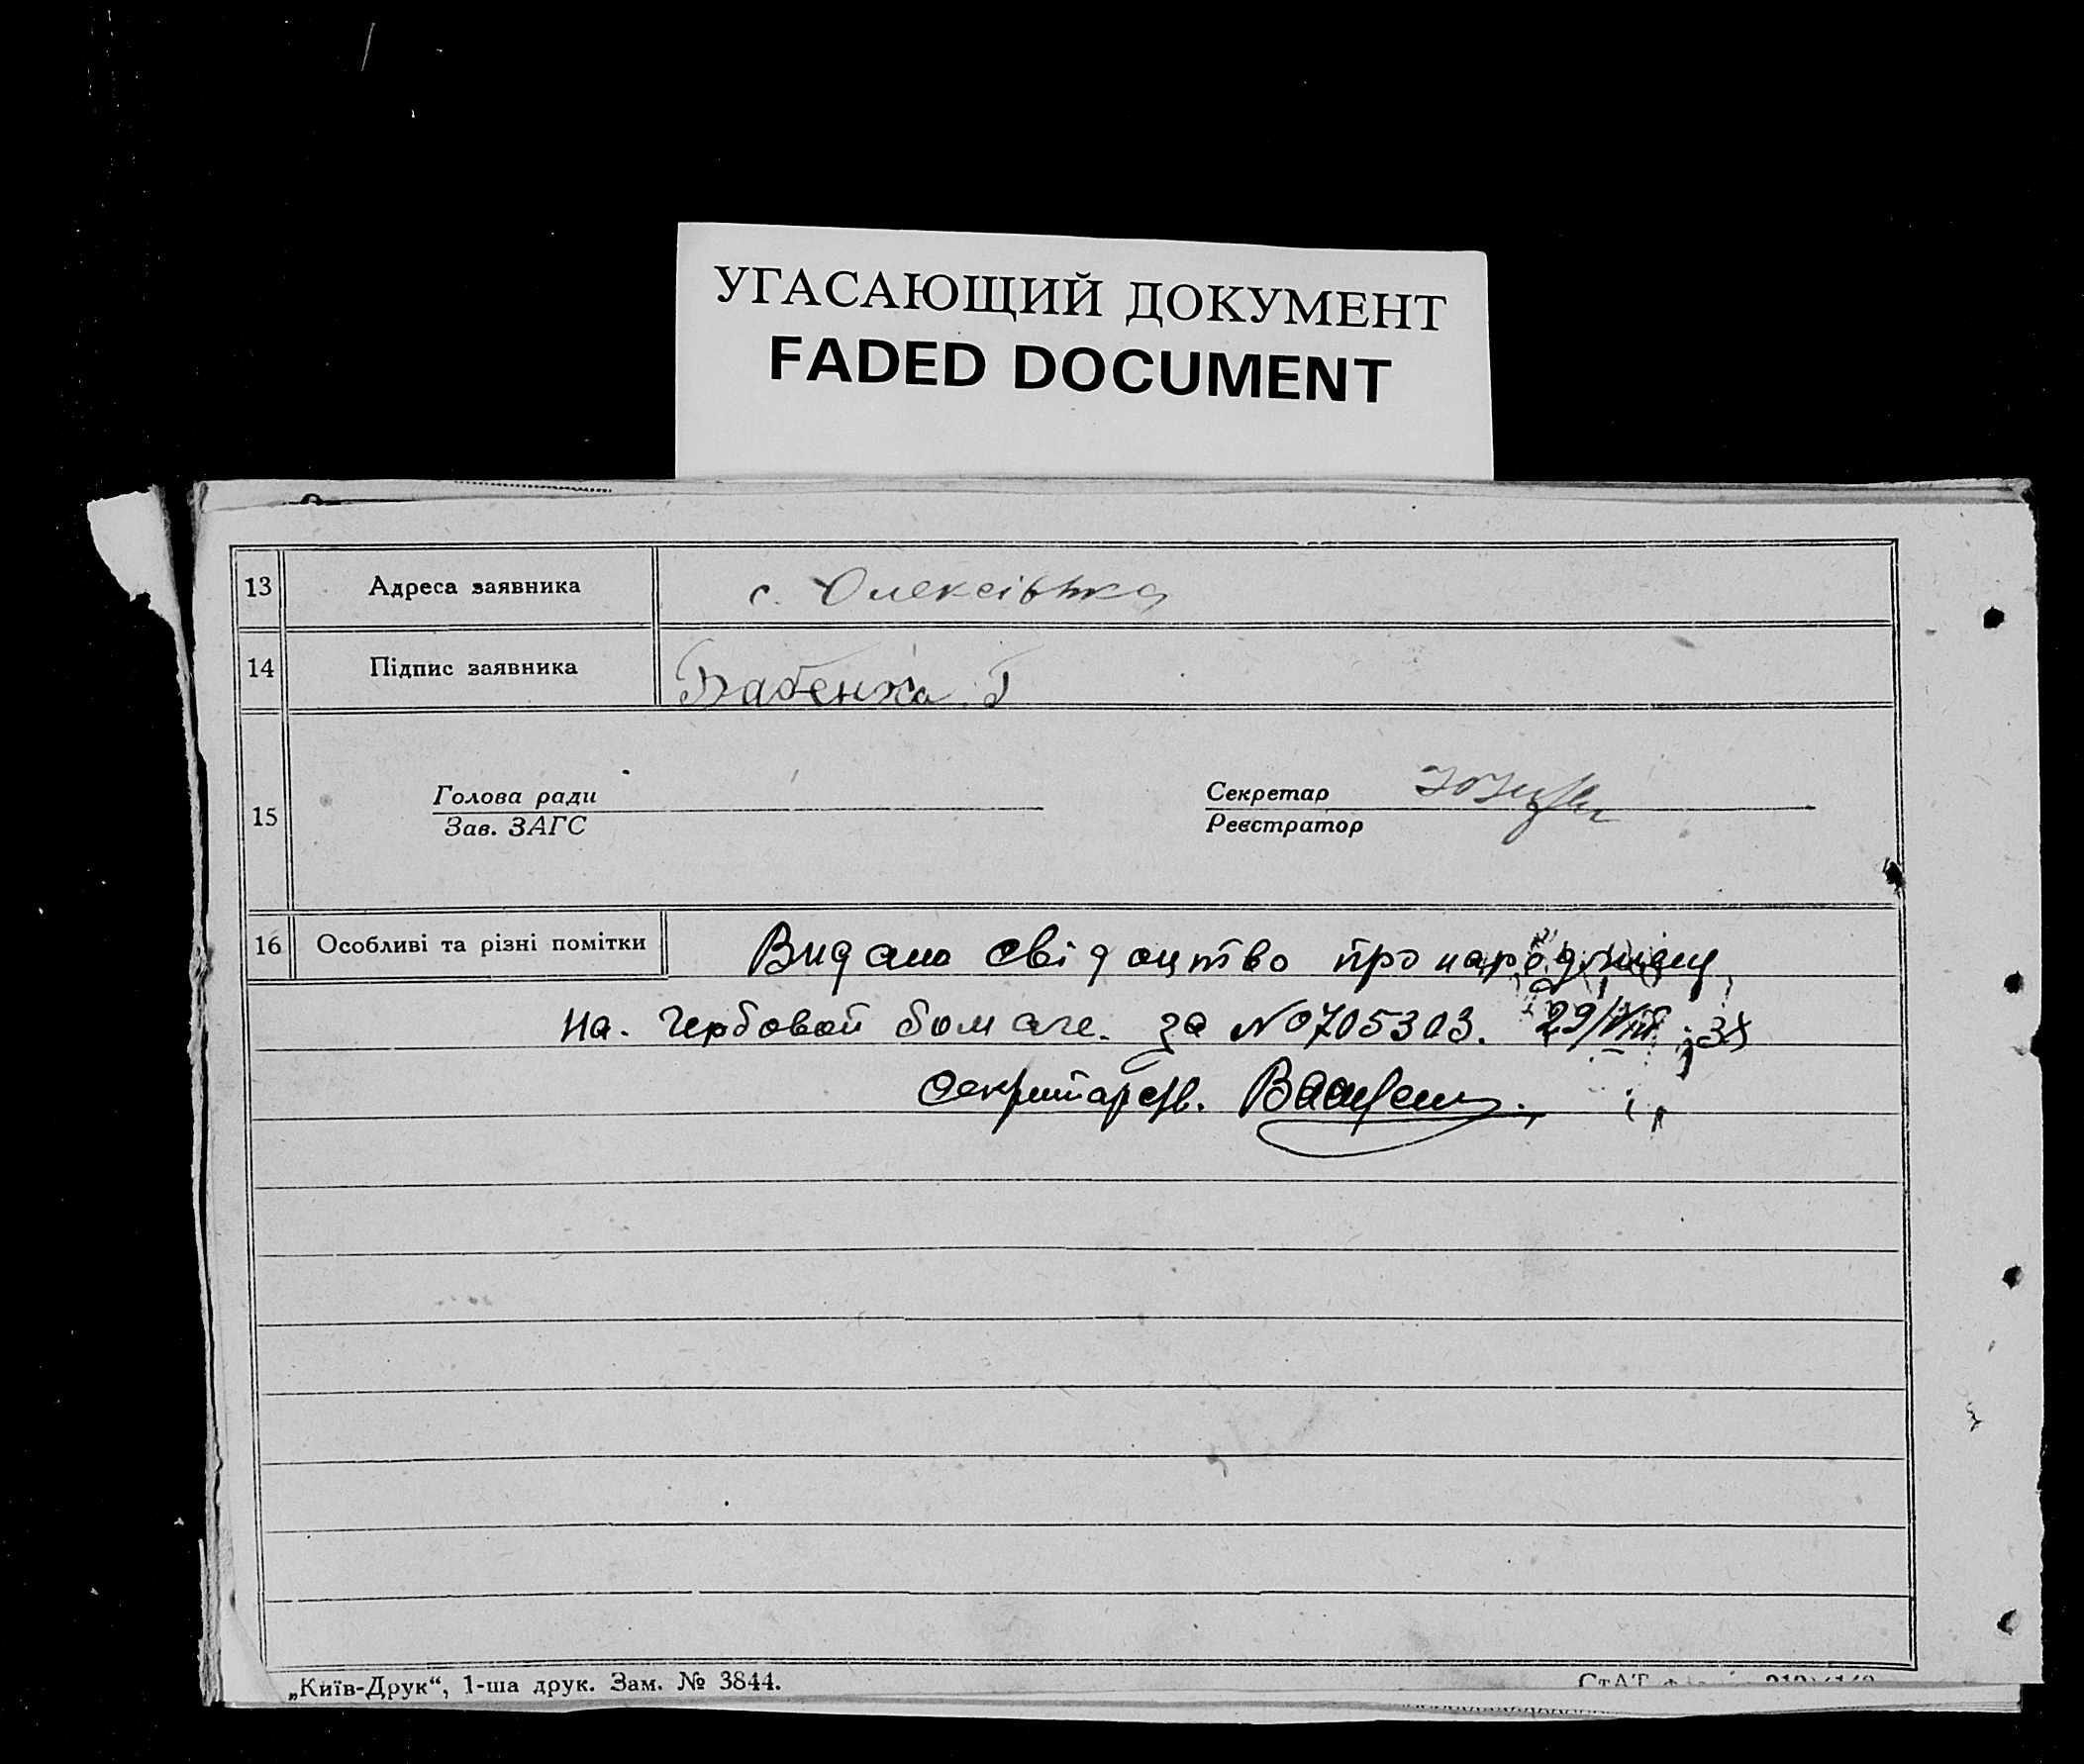 УГАСАЮЩИЙ ДОКУМЕНТ
FADED DOCUMENT
13 Адреса заявника с. Олексівка
14 Підпис заявника Бабенко Г
15 Голова ради
Зав. ЗАГС
Секретар
Реєстратор
16 Особливі та різні помітки Видано свідоцтво про народження
на. Гербовой бомаге. за № 705303. 29/VIII 38
секритар с/в.
„Київ-Друк“, 1-ша друк. Зам. № 3844.
СтАТ